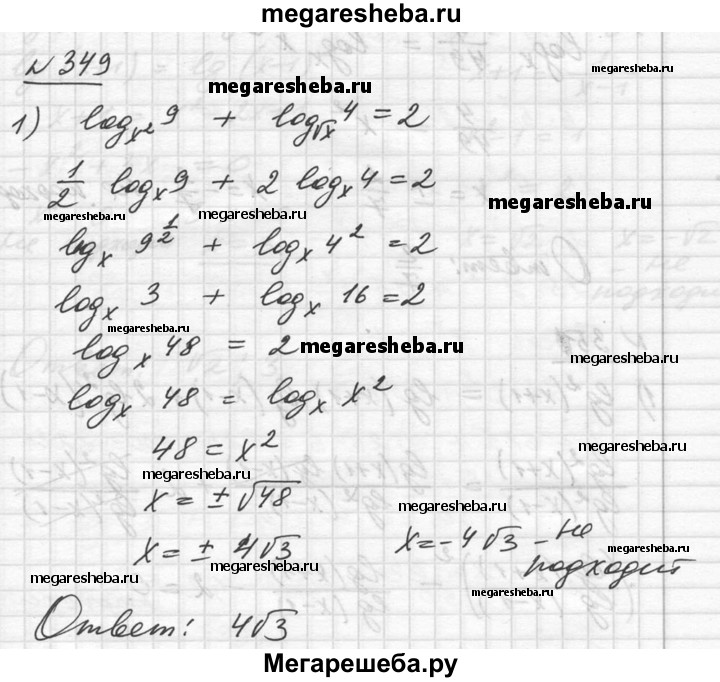 megaresheba.ru
№ 349
megaresheba.ru
1) log_{x²} 9 + log_{√x} 4 = 2
1/2 log_x 9 + 2 log_x 4 = 2
megaresheba.ru
megaresheba.ru megaresheba.ru
log_x 9^{1/2} + log_x 4² = 2
log_x 3 + log_x 16 = 2
megaresheba.ru
log_x 48 = 2
megaresheba.ru
megaresheba.ru
log_x 48 = log_x x²
48 = x²
megaresheba.ru
megaresheba.ru
x = ± √48
megaresheba.ru
x = ± 4√3 x = - 4√3 - не подходит
megaresheba.ru
megaresheba.ru
megaresheba.ru
Ответ: 4√3
Мегарешеба.ру